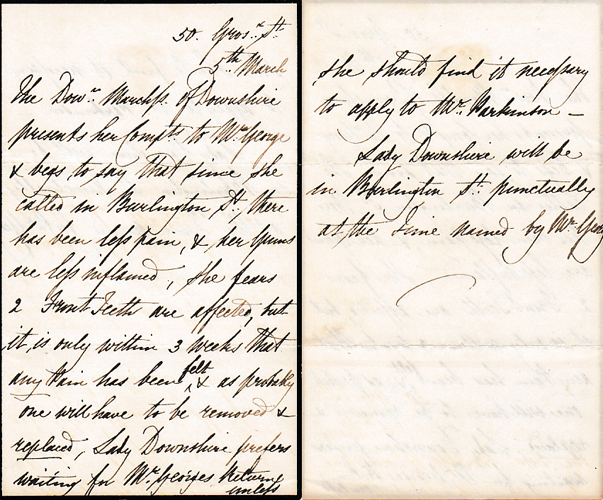 50. Gros.r St.
5th March
The Dowr. Marchss. of Downshire
presents her Compts. to Mr. George
& begs to say that since she
called in Burlington St. there
has been less pain, & her Gums
are less inflamed, She fears
2 Front Teeth are affected, but
it is only within 3 weeks that
any Pain has been felt & as probably
one will have to be removed &
replaced, Lady Downshire prefers
waiting for Mr. Georges Return
unless
she should find it necessary
to apply to Mr. Parkinson —
Lady Downshire will be
in Burlington St. punctually
at the time named by Mr. Geo